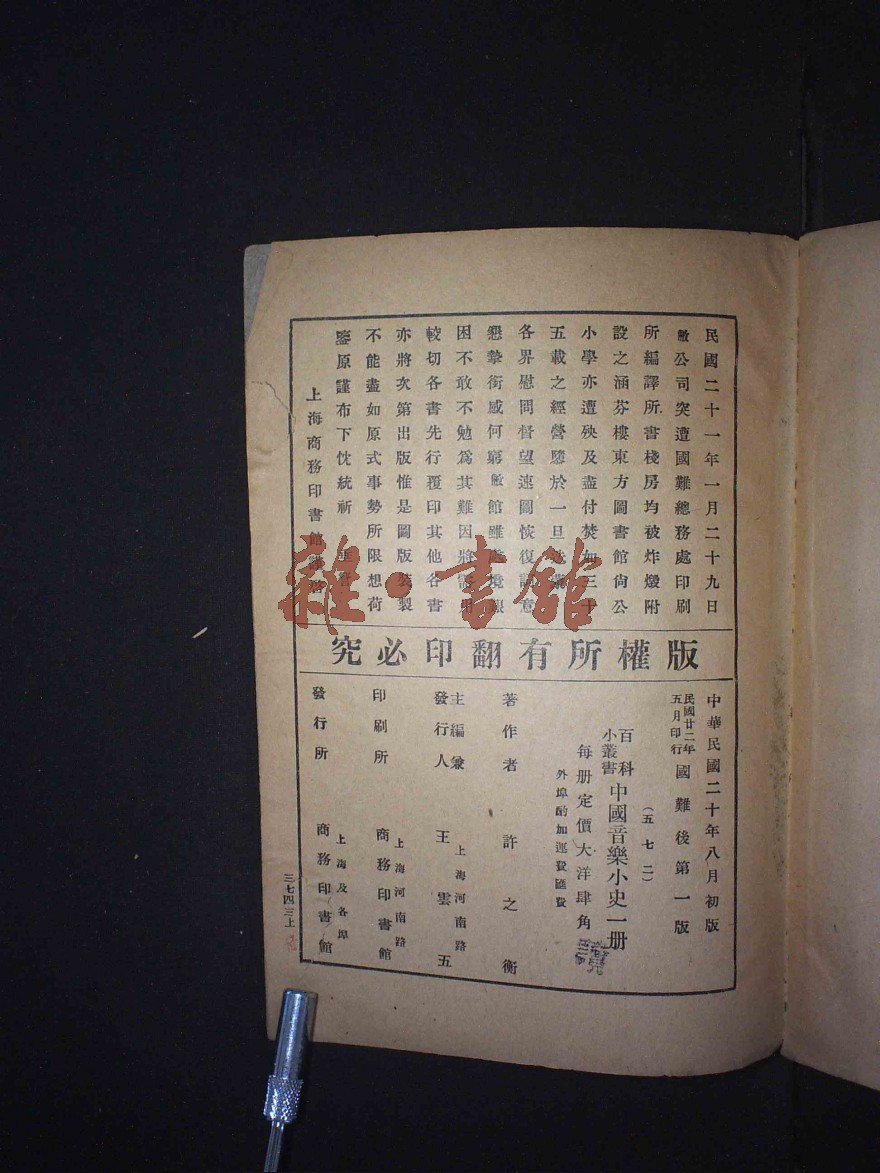 民國二十一年一月二十九日
敝公司突遭國難總務處印刷
所編譯所書棧房均被炸燬附
設之涵芬樓東方圖書館尚公
小學亦遭殃及盡付焚如三十
五載之經營隳於一旦
各界慰問督望速圖恢復意
懇摯銜感何窮敝館雖處境
困不敢不勉為其難因將
較切各書先行覆印其他各書
亦將次第出版惟是圖版裝製
不能盡如原式事勢所限想荷
鑒原謹布下忱統祈
上海商務印書館謹啓
雜·書館
版權所有翻印必究
中華民國二十年八月初版
民國廿二年五月印行 國難後第一版
（五七二）
百科小叢書 中國音樂小史一册
每册定價大洋肆角
外埠酌加運費匯費
著作者 許之衡
主編兼發行人 王雲五
上海河南路
印刷所 商務印書館
上海河南路
發行所 商務印書館
上海及各埠
三七四三上